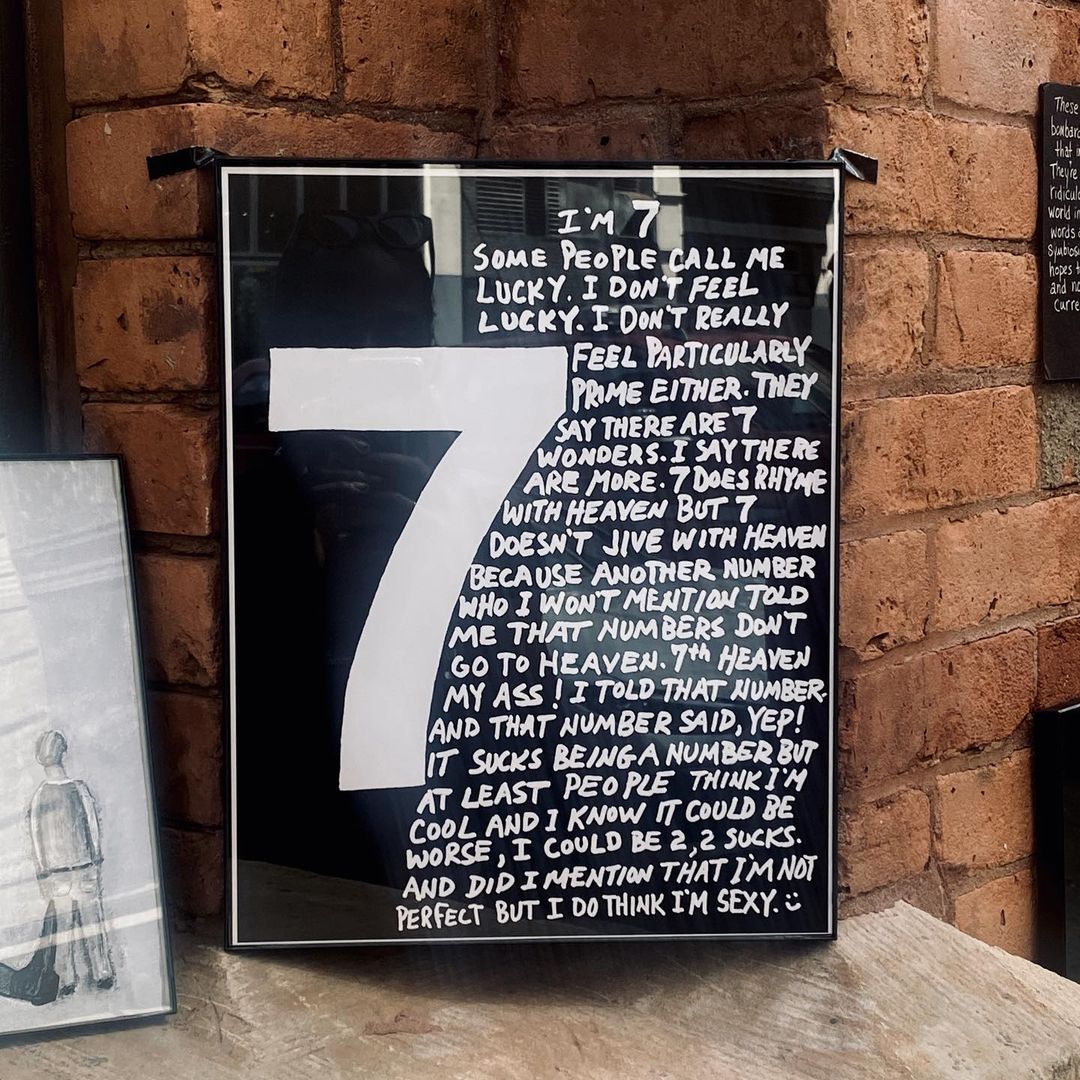 I'M 7
SOME PEOPLE CALL ME
LUCKY. I DON'T FEEL
LUCKY. I DON'T REALLY
FEEL PARTICULARLY
PRIME EITHER. THEY
SAY THERE ARE 7
WONDERS. I SAY THERE
ARE MORE. 7 DOES RHYME
WITH HEAVEN BUT 7
DOESN'T JIVE WITH HEAVEN
BECAUSE ANOTHER NUMBER
WHO I WON'T MENTION TOLD
ME THAT NUMBERS DON'T
GO TO HEAVEN. 7th HEAVEN
MY ASS! I TOLD THAT NUMBER.
AND THAT NUMBER SAID, YEP!
IT SUCKS BEING A NUMBER BUT
AT LEAST PEOPLE THINK I'M
COOL AND I KNOW IT COULD BE
WORSE, I COULD BE 2, 2 SUCKS.
AND DID I MENTION THAT I'M NOT
PERFECT BUT I DO THINK I'M SEXY.
7
These
that
They're
world
words
hopes
and